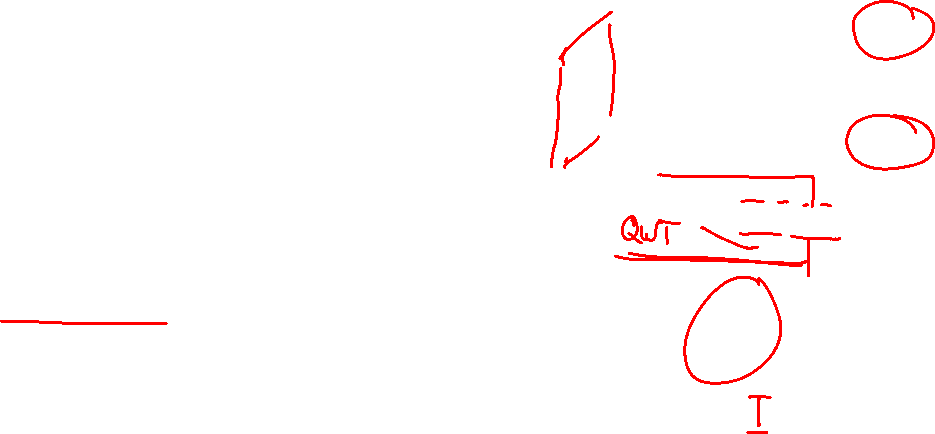 QWT
I